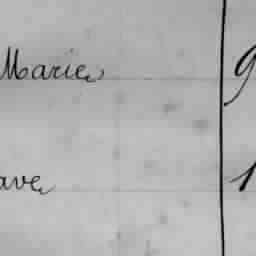 Marie 9
ave 1